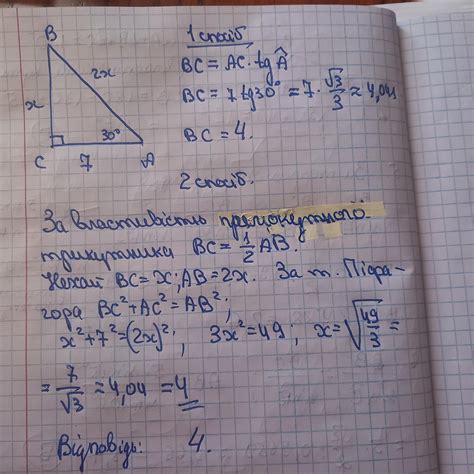 1 спосіб
B
BC = AC · tg Â
2x
BC = 7 tg30° = 7 · √3/3 ≈ 4,041
x
30°
BC = 4.
C 7 A
2 спосіб.
За властивість прямокутного
трикутника BC = 1/2 AB.
Нехай BC = x; AB = 2x. За т. Піфа-
гора BC² + AC² = AB²;
x² + 7² = (2x)²; 3x² = 49; x = √49/3 =
= 7/√3 ≈ 4,04 = 4
Відповідь: 4.